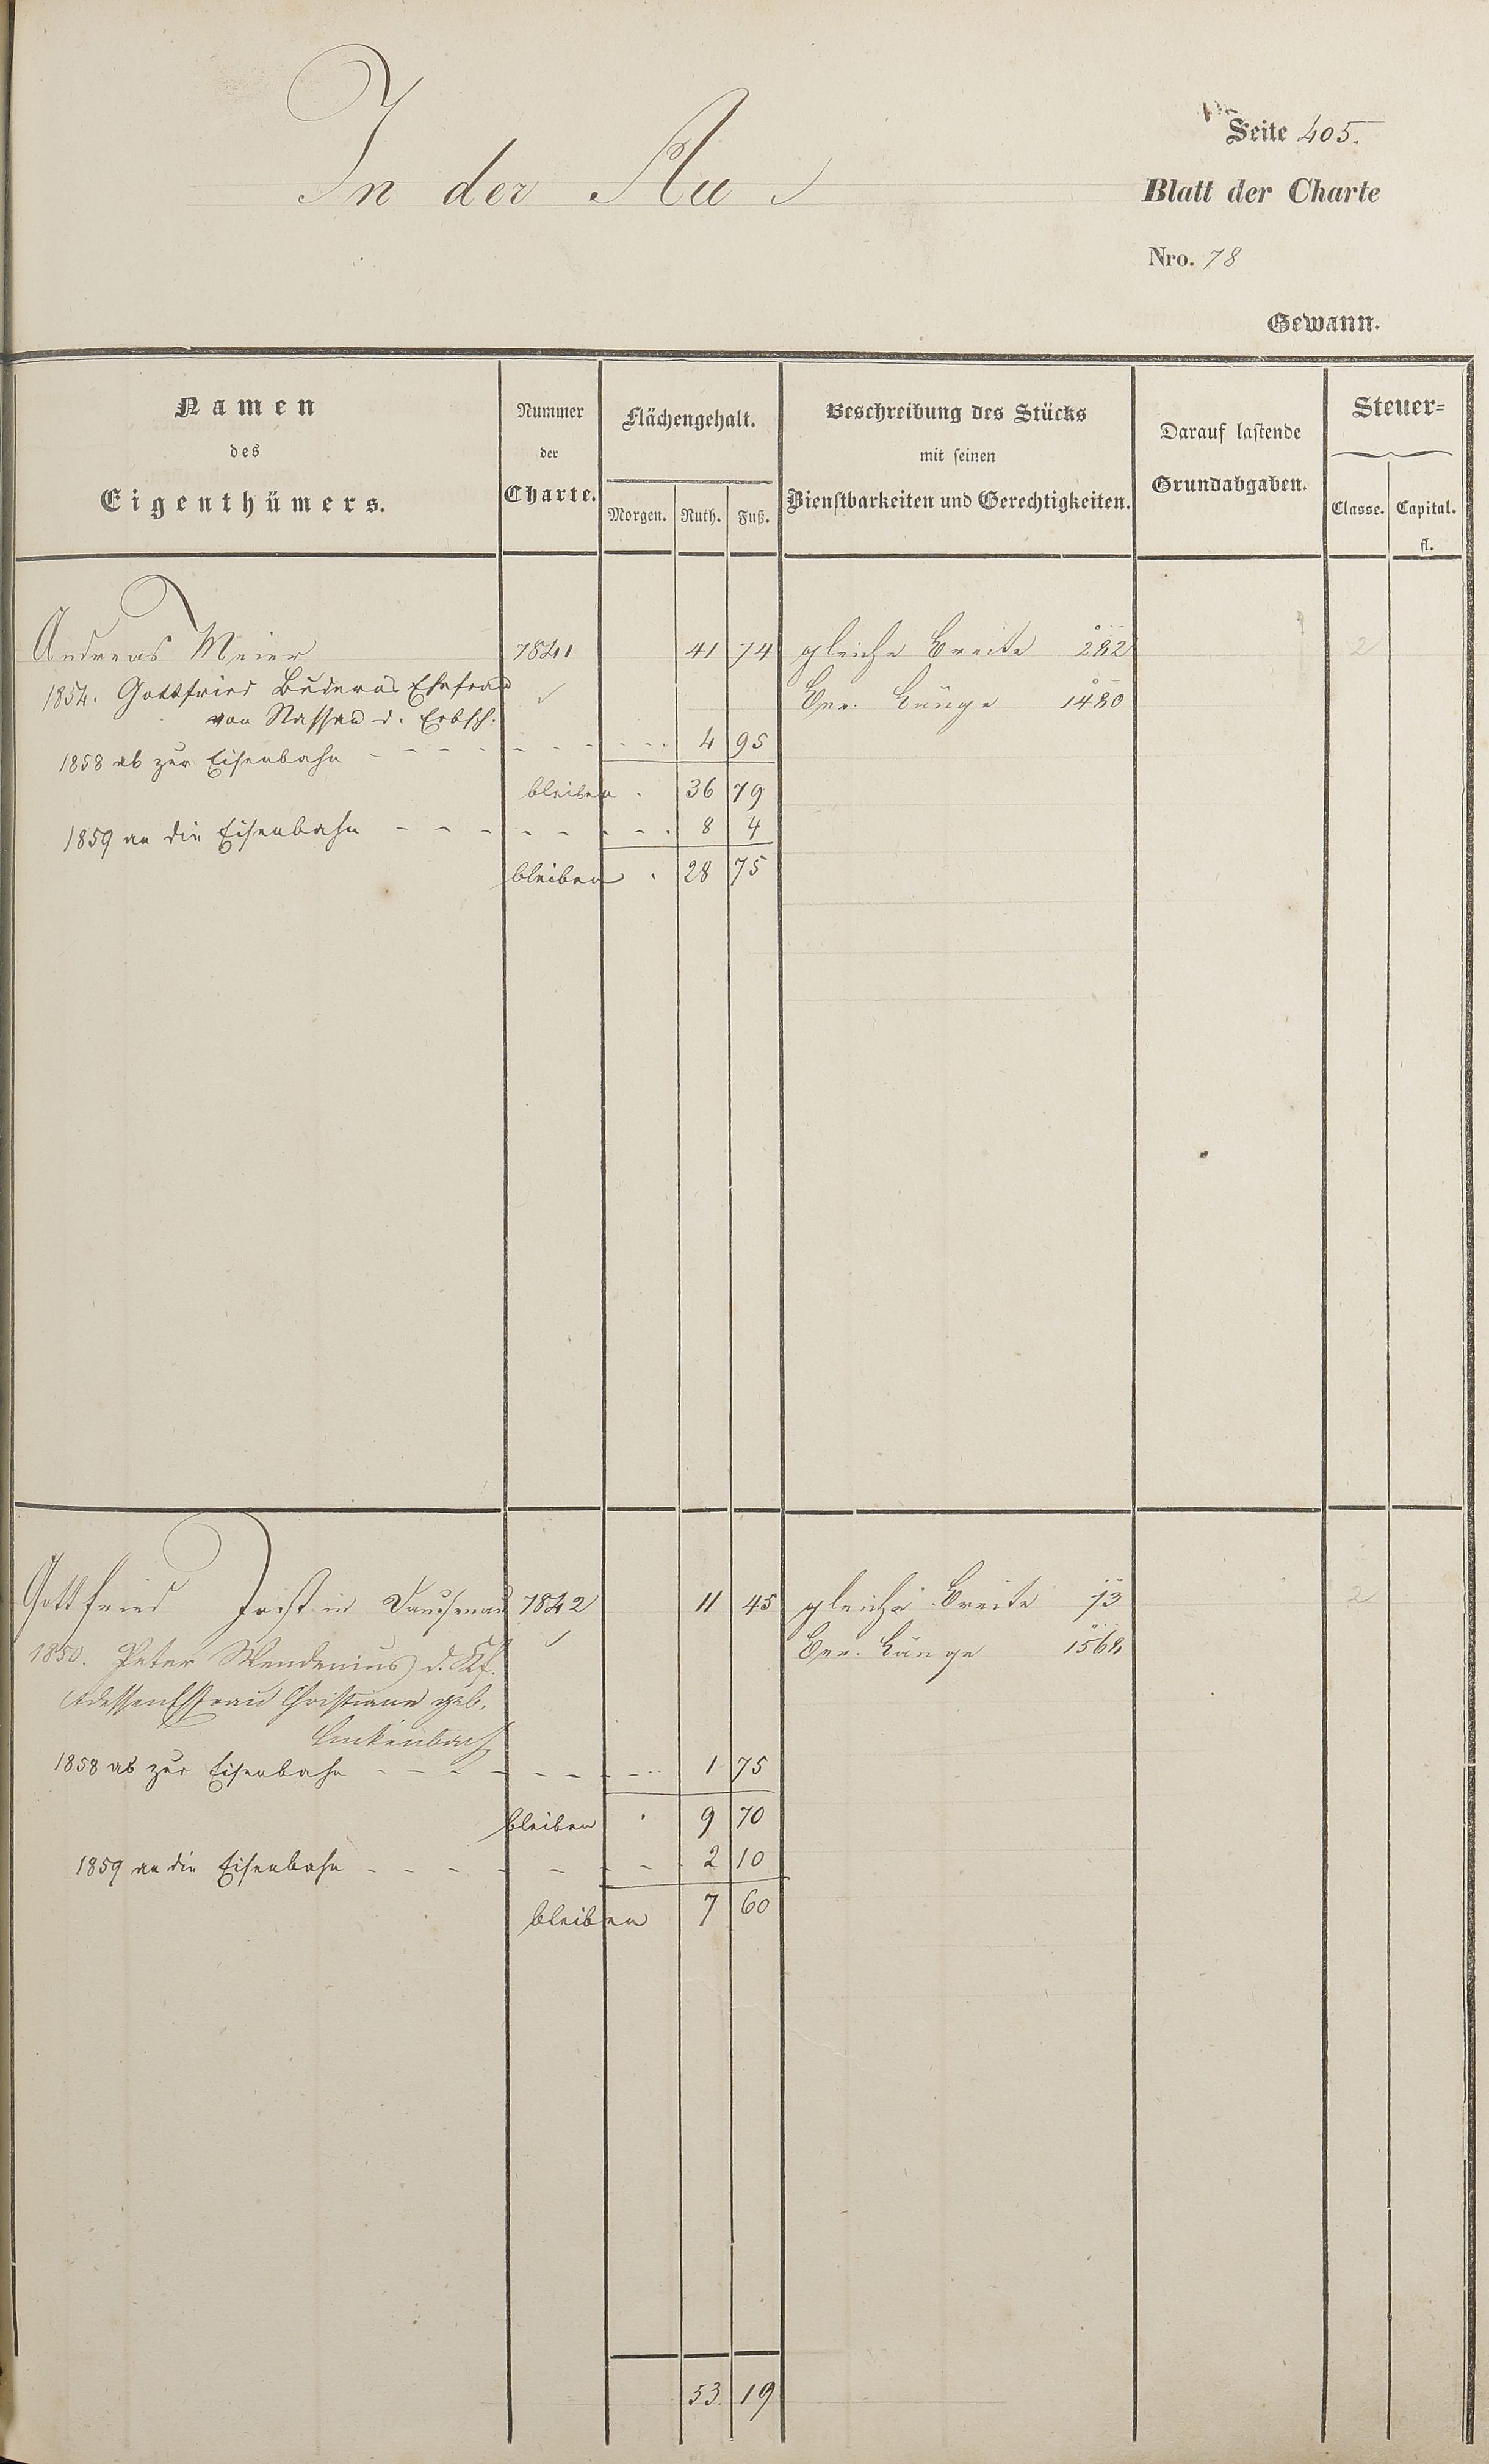 Seite 405.
In der Au
Blatt der Charte
Nro. 78
Gewann.
Namen
des
Eigenthümers.
Nummer
der
Charte.
Flächengehalt.
Morgen. Ruth. Fuß.
Beschreibung des Stücks
mit seinen
Dienstbarkeiten und Gerechtigkeiten.
Darauf lastende
Grundabgaben.
Steuer-
Classe. Capital.
fl.
Andreas Meier 7841 41 74 gleiche Breite 282 2
1854. Gottfried Buderus Ehefrau Ber. Länge 1480
von Nassau d. Erbsch.
1858 ab zur Eisenbahn - - - - - - - 4 95
bleiben . 36 79
1859 an die Eisenbahn - - - - - - - 8 4
bleiben . 28 75
Gottfried Jost in Dausenau 7842 11 45 gleiche Breite 73 2
1850. Peter d. Kf. Ber. Länge 1568
Christiane geb.
Luckenbach
1858 ab zur Eisenbahn - - - - - - - 1 75
bleiben . 9 70
1859 an die Eisenbahn - - - - - - - 2 10
bleiben 7 60
53. 19